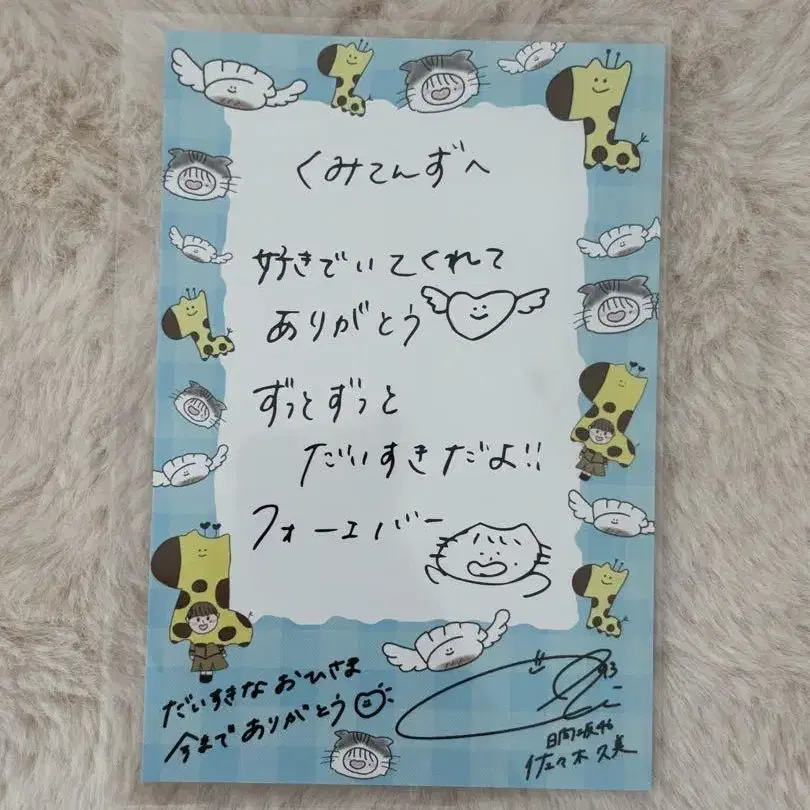 くみてんずへ
好きでいてくれて
ありがとう
ずっとずっと
だいすきだよ!!
フォーエバー
だいすきなおひさま
今までありがとう
日向坂46
佐々木久美